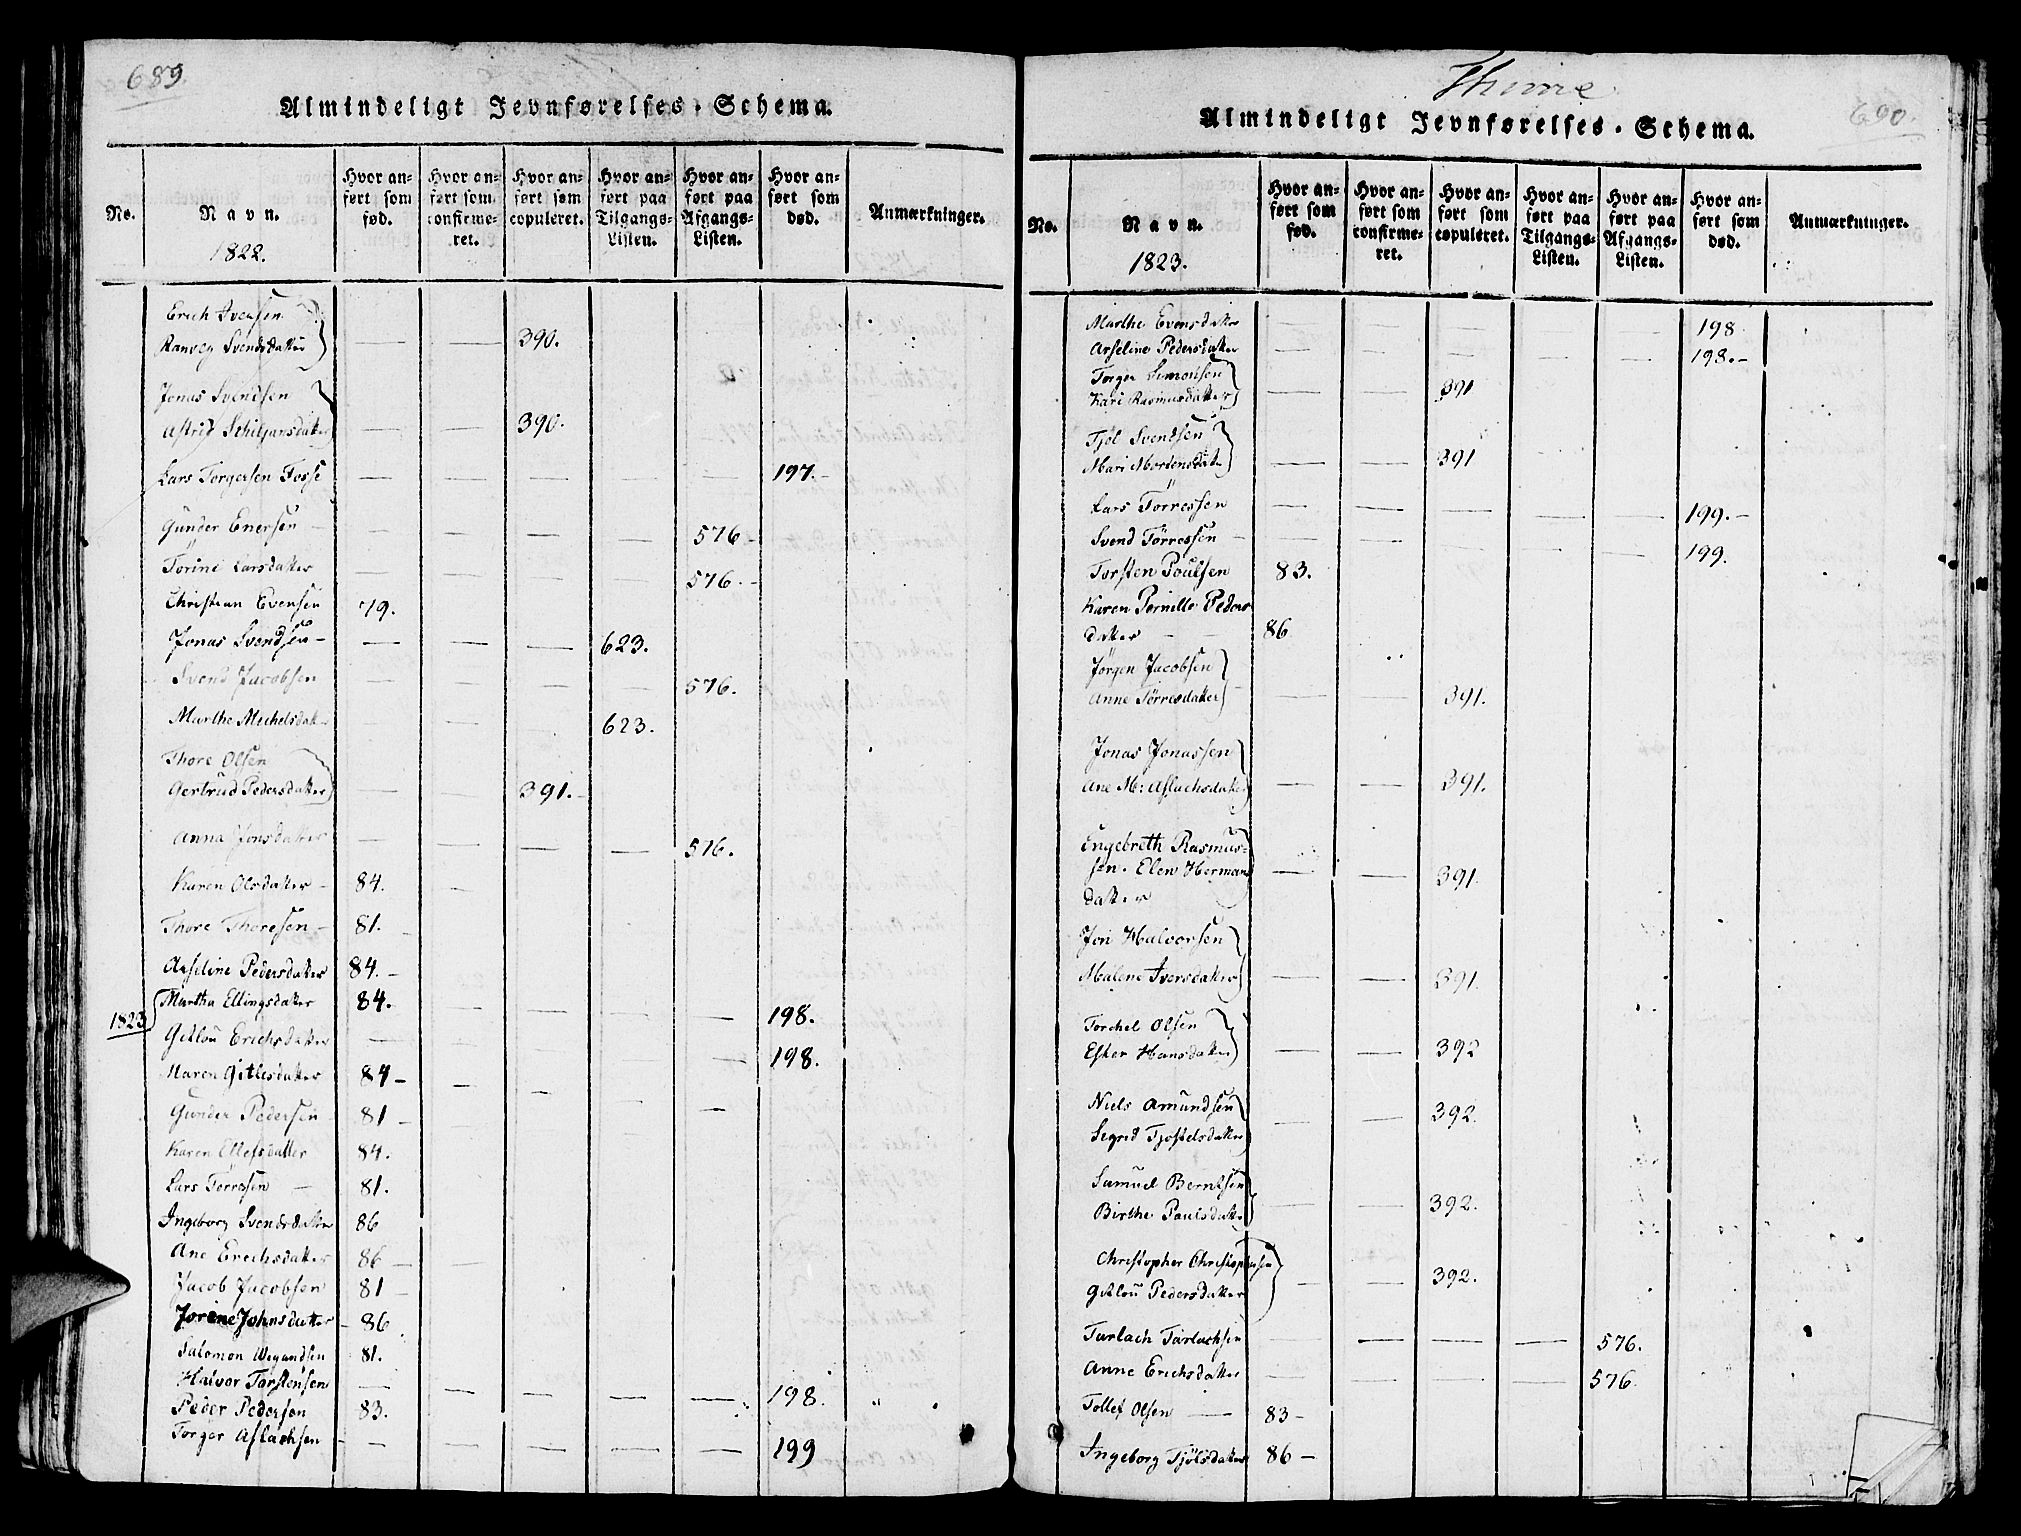 689.
Almindeligt Jevnførelses-Schema.
No.
Navn.
1822.
Hvor an-
ført som
fød.
Hvor an-
ført som
confirme-
ret.
Hvor an-
ført som
copuleret.
Hvor an-
ført paa
Tilgangs-
Listen.
Hvor an-
ført paa
Afgangs-
Listen.
Hvor an-
ført som
død.
Anmærkninger.
Erich Ivensen
Ranveg Svendsdatter — — 390.
Jonas Svendsen
Astrid Schiljansdatter — — 390.
Lars Torgersen Fosse — — — — — 197.
Gunder Enersen — — — — 576
Torine Larsdatter — — — — 576.
Christian Evensen 79.
Jonas Svendsen — — — 623.
Svend Jacobsen — — — — 576.
Marthe Mechelsdatter — — — 623.
Thore Olsen
Gertrud Pedersdatter — — 391.
Anna Jonsdatter — — — — 576.
Karen Olsdatter 84.
Thore Thoresen 81.
Arseline Pedersdatter 84.
Martha Ellingsdatter 84. — — — — 198.
1823
Gitlou Erichsdatter — — — — — 198.
Maren Gitlesdatter 84
Gunder Pedersen 81
Karen Ellefsdatter 84.
Lars Törresen 81.
Ingeborg Svendsdatter 86
Ane Erichsdatter 86
Jacob Jacobsen 81
Jorine Johnsdatter 86
Salomon Wegandsen 81.
Halvor Torstensen — — — — — 198.
Peder Pedersen 83.
Torger Aslachsen — — — — — 199
Thime
690.
Almindeligt Jevnførelses-Schema.
No.
Navn.
1823.
Hvor an-
ført som
fød.
Hvor an-
ført som
confirme-
ret.
Hvor an-
ført som
copuleret.
Hvor an-
ført paa
Tilgangs-
Listen.
Hvor an-
ført paa
Afgangs-
Listen.
Hvor an-
ført som
død.
Anmærkninger.
Marthe Evensdatter — — — — — 198
Arseline Pedersdatter — — — — — 198.
Torger Simonsen
Kari Rasmusdatter — — 391
Tjöl Svendsen
Mari Mortensdatter — — 391
Lars Törressen — — — — — 199.
Svend Törressen — — — — — 199.
Torsten Poulsen 83.
Karen Pernille Peders
datter 86
Jörgen Jacobsen
Anne Törresdatter — — 391.
Jonas Jonassen
Ane M: Aslachsdatter — — 391.
Engebreth Rasmus-
sen. Elen Hermans — — 391
datter
Jon Halvorsen
Malene Iversdatter — — 391.
Torchel Olsen
Ester Hansdatter — — 392
Niels Amundsen
Segred Tjostelsdatter — — 392.
Samuel Berntsen
Birthe Paulsdatter — — 392.
Christopher Christophersen
Gitlou Pedersdatter — — 392.
Tarlach Tarlachsen — — — — 576.
Anne Erichsdatter — — — — 576.
Tollef Olsen — 83
Ingeborg Tjölsdatter 86